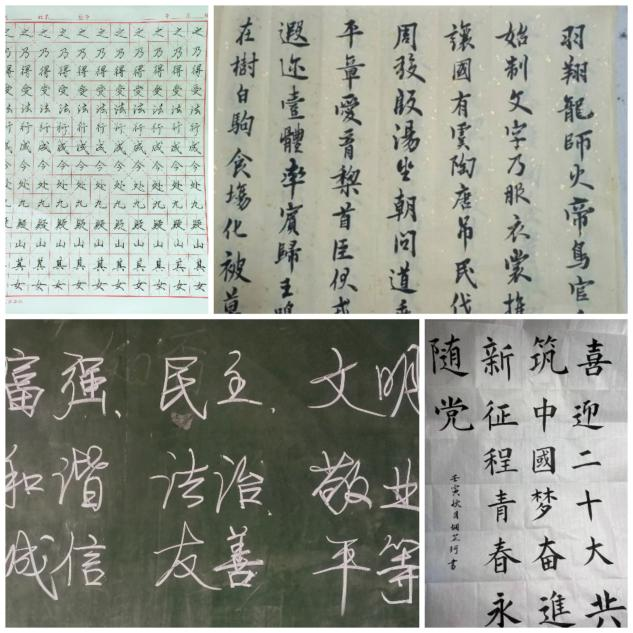 之乃得受法行成今处九殿山其女
之乃得受法行成今处九殿山其女
之乃得受法行成今处九殿山其女
之乃得受法行成今处九殿山其女
之乃得受法行成今处九殿山其女
之乃得受法行成今处九殿山其女
之乃得受法行成今处九殿山其女
之乃得受法行成今处九殿山其女
之乃得受法行成今处九殿山其女
之乃得受法行成今处九殿山其女
之乃得受法行成今处九殿山其女
羽翔龍師火帝鳥官
始制文字乃服衣裳推
讓國有虞陶唐吊民伐
周發殷湯坐朝問道垂
平章愛育黎首臣伏戎
遐迩壹體率賓歸王鳴
在樹白駒食場化被草
富强、民主、文明
和谐 法治 敬业
诚信 友善 平等
喜迎二十大共
筑中國梦奋進
新征程青春永
随党
壬寅秋月胡 书